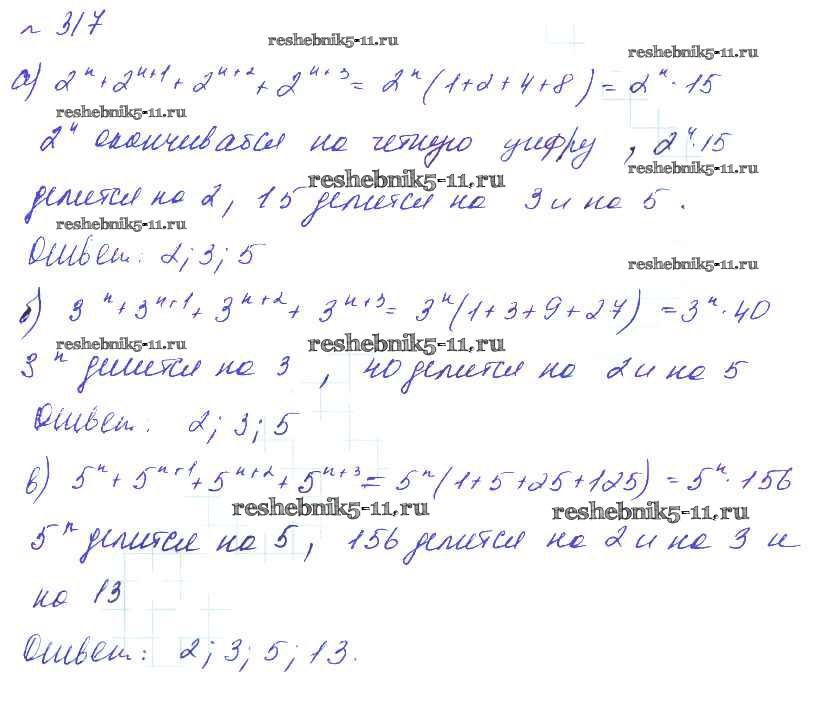 № 317
reshebnik5-11.ru
reshebnik5-11.ru
а) 2ⁿ + 2ⁿ⁺¹ + 2ⁿ⁺² + 2ⁿ⁺³ = 2ⁿ(1+2+4+8) = 2ⁿ·15
reshebnik5-11.ru
2ⁿ оканчивается на четную цифру, 2ⁿ·15
reshebnik5-11.ru
reshebnik5-11.ru
делится на 2, 15 делится на 3 и на 5.
reshebnik5-11.ru
Ответ: 2; 3; 5
reshebnik5-11.ru
б) 3ⁿ + 3ⁿ⁺¹ + 3ⁿ⁺² + 3ⁿ⁺³ = 3ⁿ(1+3+9+27) = 3ⁿ·40
reshebnik5-11.ru
reshebnik5-11.ru
3ⁿ делится на 3, 40 делится на 2 и на 5
Ответ: 2; 3; 5
в) 5ⁿ + 5ⁿ⁺¹ + 5ⁿ⁺² + 5ⁿ⁺³ = 5ⁿ(1+5+25+125) = 5ⁿ·156
reshebnik5-11.ru
reshebnik5-11.ru
5ⁿ делится на 5, 156 делится на 2 и на 3 и
на 13
Ответ: 2; 3; 5; 13.